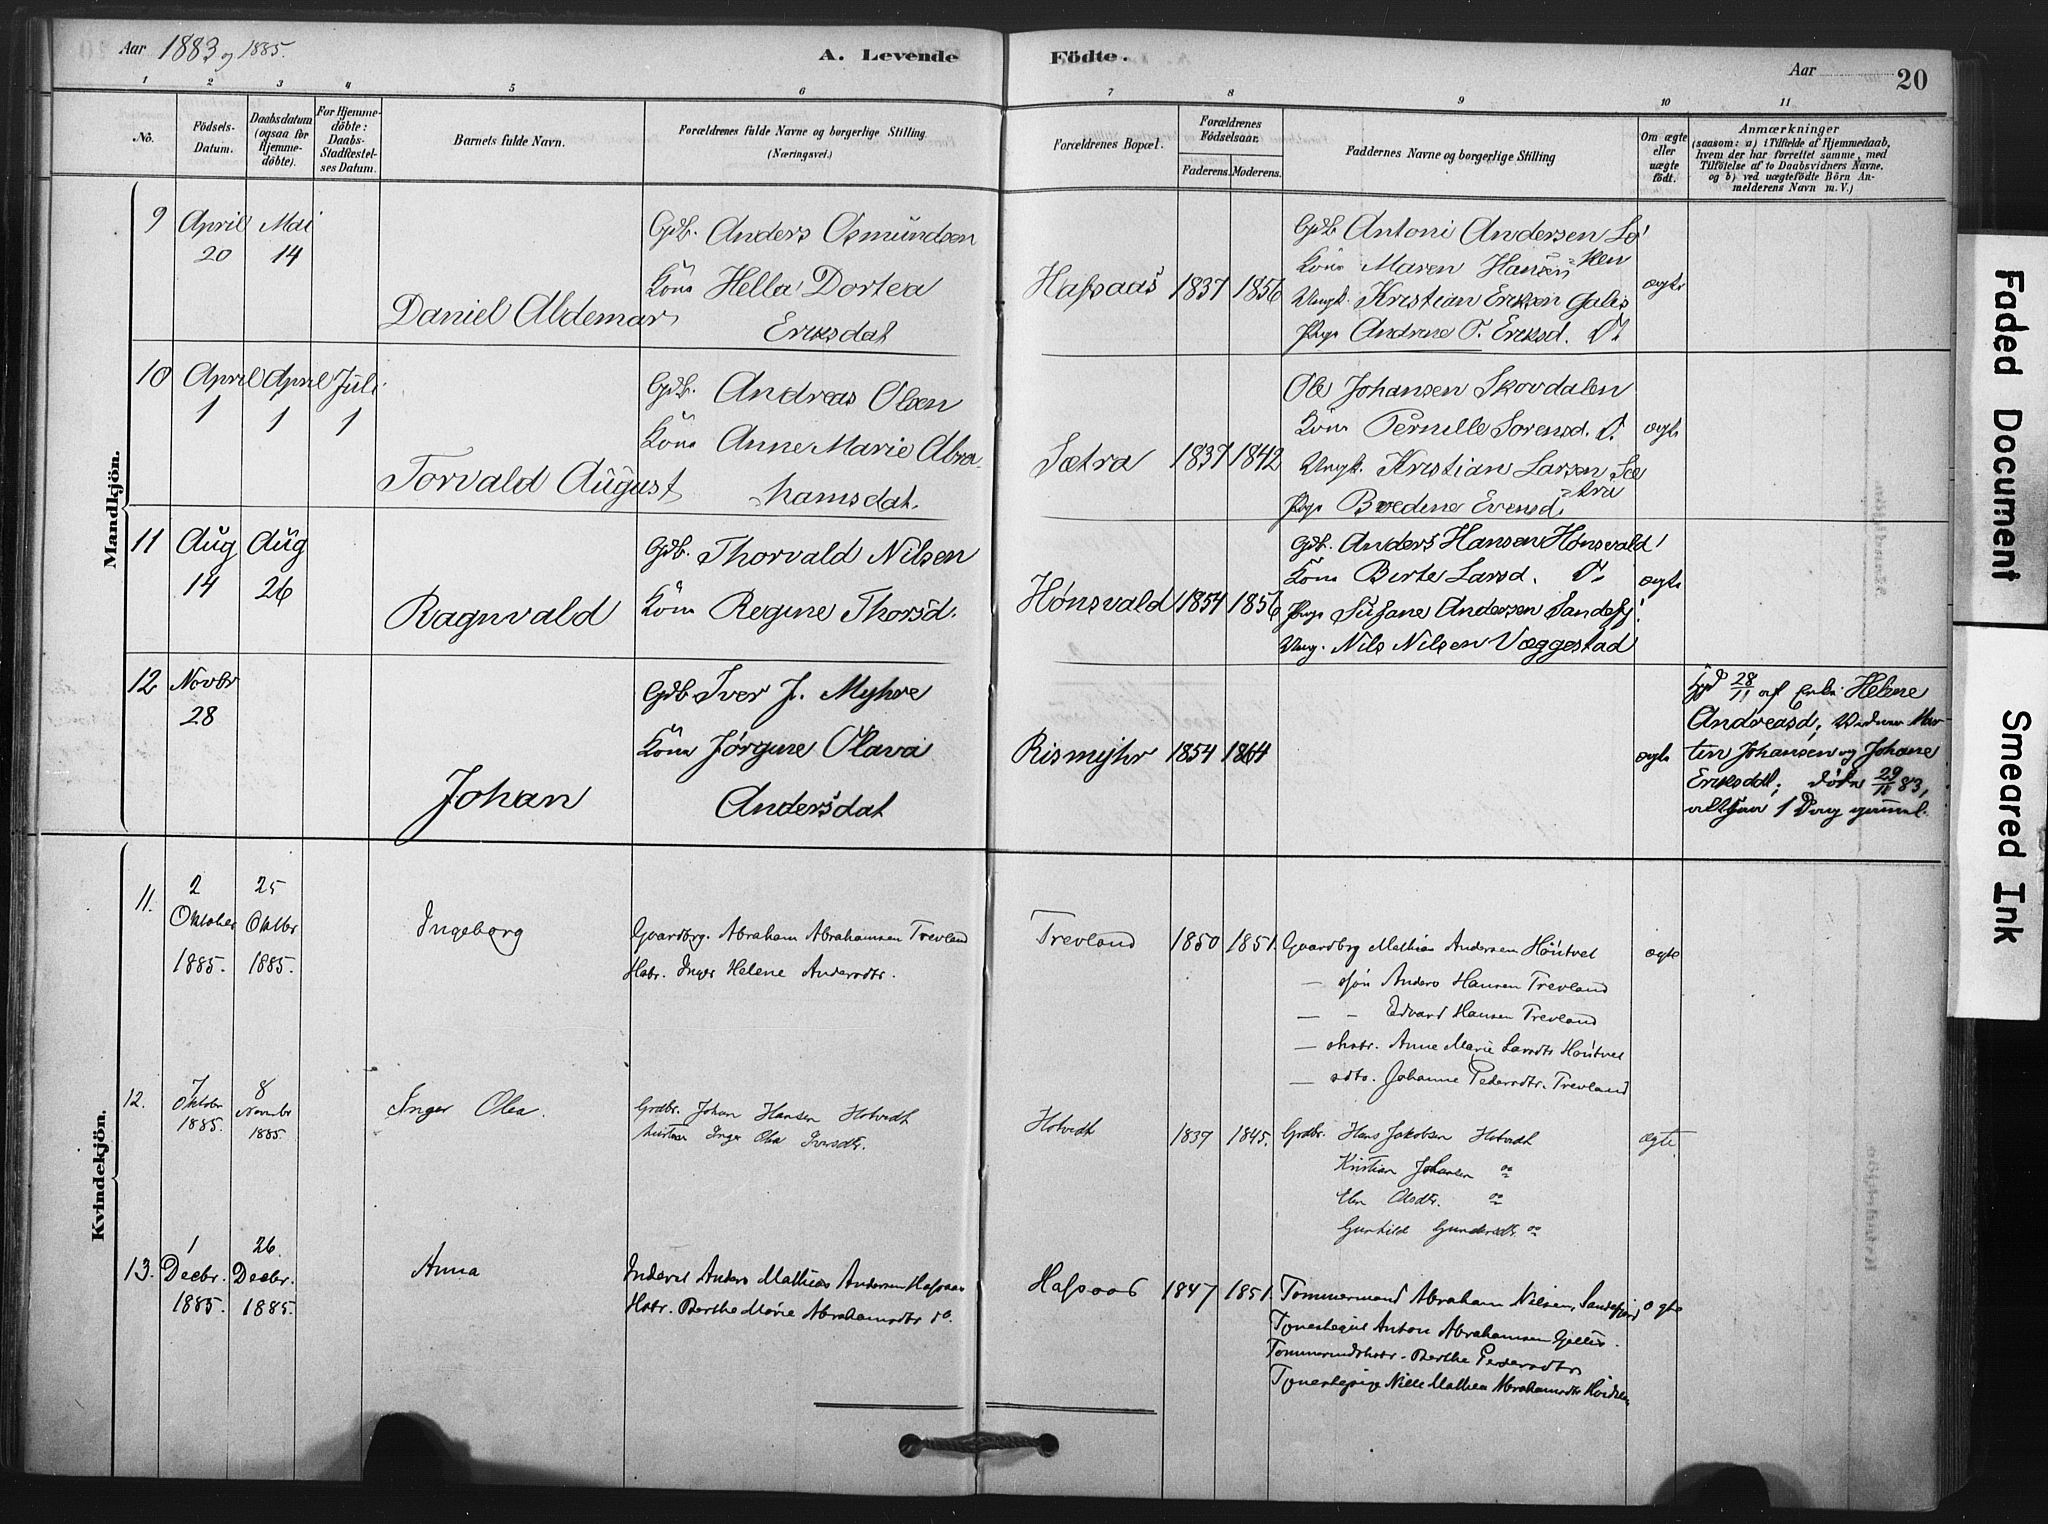 Aar 1883 og 1885.
A. Levende Födte.
Aar
20
1 2 3 4 5 6 7 8 9 10 11
No.
Födsels-Datum.
Daabsdatum (ogsaa for Hjemme-döbte).
For Hjemme-döbte: Daabs-Stadfæstel-ses Datum.
Barnets fulde Navn.
Forældrenes fulde Navne og borgerlige Stilling
(Næringsvei.)
Forældrenes Bopæl.
Forældrenes Födselsaar.
Faderens. Moderens.
Faddernes Navne og borgerlige Stilling
Om ægte eller uægte födt.
Anmærkninger
(saasom: a) i Tilfælde af Hjemmedaab,
hvem der har forrettet samme, med
Tilföielse af to Daabsvidners Navne,
og b) ved uægtefödte Börn An-
melderens Navn m. V.)
Mandkjön.
9 April 20 Mai 14
Daniel Aldemar
Gdb. Anders Osmundsen
Kone Hella Dortea
Eriksdat
Hafsaas 1837 1856
Gdb Antoni Andersen Lø
Kone Maren Hansen =ken
Ungk. Kristian Eriksen Galis
Pige Andrine O. Eriksd. Do
ægte
10 April 1 April 1 Juli 1
Torvald August
Gdb. Andreas Olsen
Kone Anne Marie Abra
hamsdat.
Sætra 1837 1842
Ole Johansen Skovdalen
Kone Pernille Sorensd. Do
Ungk. Kristian Larsen Sæ
=tra
Pige Bredine Evensd.
ægte
11 Aug 14 Aug 26
Ragnvald
Gdb. Thorvald Nilsen
Kone Regine Thorsd.
Hønsvald 1854 1856
Gdb. Anders Hansen Hønsvald
Kone Berte Larsd. Do
Pige Susane Andersen Sandefj.
Ung. Nils Nilsen Væggestad
ægte
12 Novbr 28
Johan
Gdb Iver J. Myhre
Kone Jørgine Olava
Andersdat
Rismyhr 1854 1864
ægte
28/11 af Enke Helene
Andreasd, Vidner Mar-
tin Johansen og Johane
Eriksdat; døde 29/11 83,
altsaa 1 Dag gammel.
Kvindekjön.
11. 2 Oktober 1885. 25 Oktbr 1885.
Ingeborg
Gaardbrg. Abraham Abrahamsen Trevland
Hstr. Inger Helene Andersdtr.
Trevland 1850 1851.
Gaardbrg Mathias Andersen Høitvet
— søn Anders Hansen Trevland
— - Edvard Hansen Trevland
— hstr. Anne Marie Larsdtr Høitvet
— dtr. Johanne Pedersdtr. Trevland
ægte
12. 7 Oktober 1885. 8 Novembr 1885.
Inger Olea.
Grdbr. Johan Hansen Hotvedt
Hustru Inger Olea Iversdtr.
Hotvedt 1839 1845.
Grdbr. Hans Jakobsen Hotvedt
Kristian Johansen do
Elen Olsdtr. do
Gunhild Gundersdtr. do
ægte
13. 1 Decbr. 1885. 26. Decbr. 1885.
Anna
Inderst Anders Mathias Andersen Hafsaas
Hstr. Berthe Marie Abrahamsdtr do.
Hafsaas 1847 1851.
Tømmermand Abraham Nilsen, Sandefjord
Tjenestegut Anton Abrahamsen Gallis.
Tømmermdshstr. Berthe Pedersdtr
Tjenestepige Nille Mathea Abrahamsdtr
ægte
Faded Document
Smeared Ink